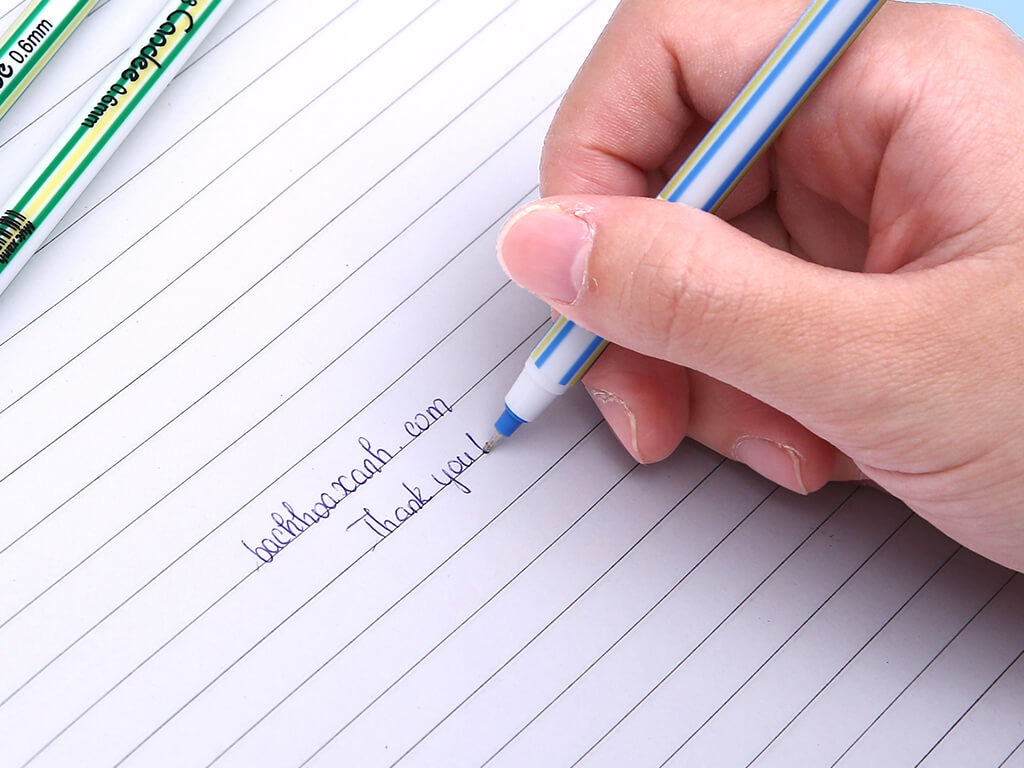 0.6mm
Candee 0.6mm
bachhoaxanh.com
Thank you!